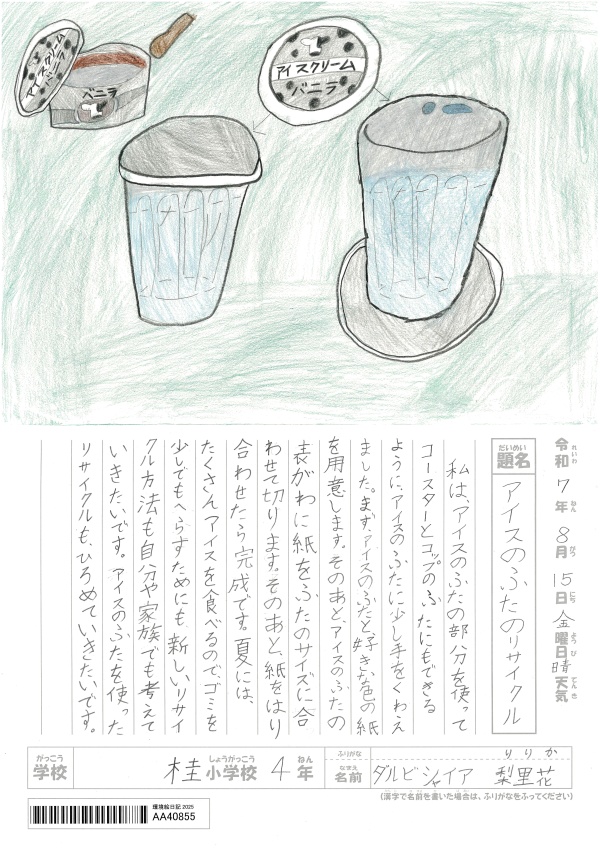 アイスクリーム
バニラ
バニラ
アイスクリーム
バニラ
令和7年8月15日金曜日晴天気
れいわ ねん がつ にち ようび てんき
だいめい
題名
アイスのふたのリサイクル
私は、アイスのふたの部分を使って
コースターとコップのふたにもできる
ように、アイスのふたに少し手をくわえ
ました。まず、アイスのふたと好きな色の紙
を用意します。そのあと、アイスのふたの
表がわに紙をふたのサイズに合
わせて切ります。そのあと、紙をはり
合わせたら完成です。夏には、
たくさんアイスを食べるので、ゴミを
少しでもへらすためにも、新しいリサイ
クル方法も自分や家族でも考えて
いきたいです。アイスのふたを使った
リサイクルも、ひろめていきたいです。
がっこう
学校
しょうがっこう ねん
桂小学校4年
ふりがな
りりか
なまえ
名前
ダルビシャイア 梨里花
(漢字で名前を書いた場合は、ふりがなをふってください)
環境絵日記 2025
AA40855